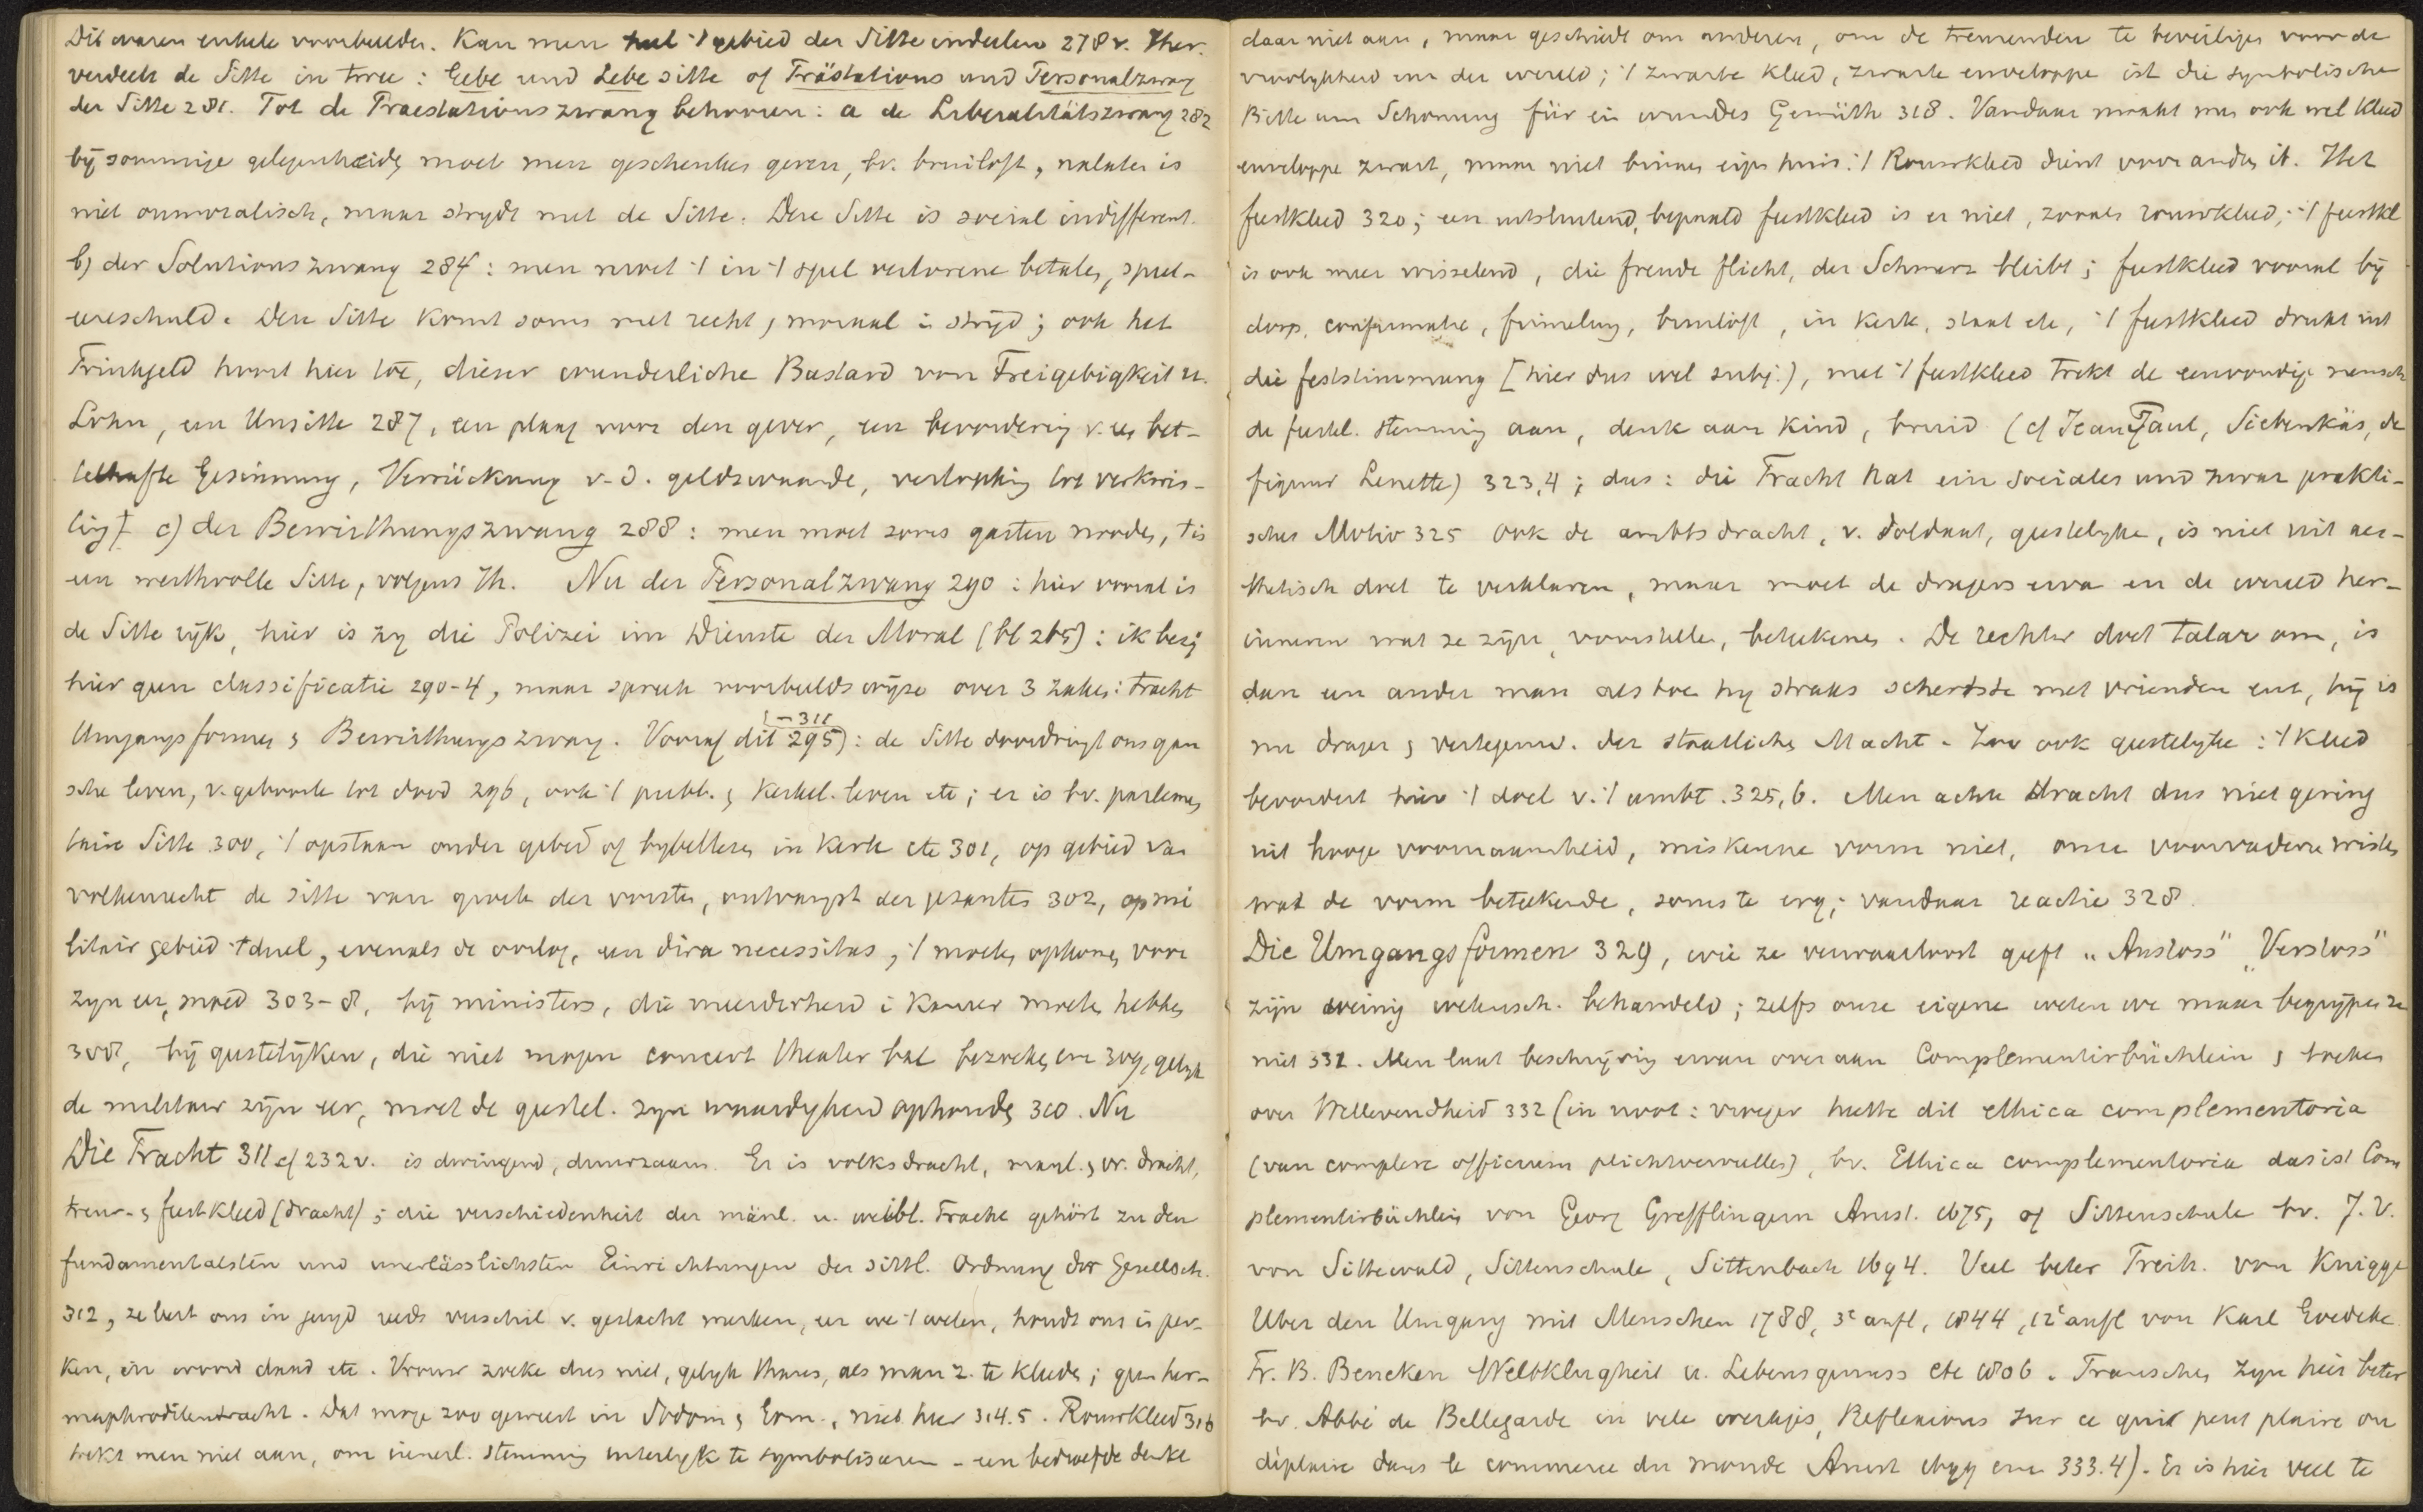 Dit waren enkele voorbeelden. Kan men heel 't gebied der Sitte indeelen 278 v. Iher.
verdeelt de Sitte in twee: Gebe und Lebe sitte of Prästations und Personalzwang
der Sitte 281. Tot de Praestationszwang behooren: a de Liberalitätszwang 282
bij sommige gelegenheidg moet men geschenken geven, bv. bruiloft, nalaten is
niet onmoralisch, maar strydt met de Sitte. Deze Sitte is sociaal indifferent.
b) der Solutionszwang 284: men moet 't in 't spel verlorene betalen, speel-
eereschuld. Deze Sitte komt soms met recht, moraal i strijd; ook het
Trinkgeld hoort hier toe, dieser wunderliche Bastard von Freigebigkeit u.
Lohn, een Unsitte 287, een plaag voor den gever, een bevordering v. eg bet-
telhafte Gesinnung, Verrückung v. d. geldswaarde, verlokking tot verkwis-
ting † c) der Bewirthungszwang 288: men moet soms gasten nooden, 't is
een werthvolle Sitte, volgens Ih. Nu der Personalzwang 290: hier vooral is
de Sitte rijk, hier is zy die Polizei im Dienste der Moral (bl 265): ik bezig
hier geen classificatie 290-4, maar spreek voorbeelds wijze over 3 zaken: Tracht
Umgangsformen, Bewirthungszwang. Vooraf dit 295 (-311): de Sitte doordringt ons gan
sche leven, v. geboorte tot dood 296, ook 't publ. , kerkel. leven etc; er is bv. parlemen
taire Sitte 300, 't opstaan onder gebed of bybellezen in kerk etc 301, op gebied van
volkenrecht de sitte van groete der vorsten, ontvangst der gezanten 302, op mi
litair gebied 't duel, evenals de oorlog, een dira necessitas, 't moeten opkomen voor
zyn eer, moed 303-8, bij ministers, die meerderheid i Kamer moeten hebben
308, bij geestelijken, die niet mogen concert theater bal bezoeken enz 309, gelyk
de militair zijn eer, moet de geestel. zyn waardigheid ophouden 310. Nu
Die Tracht 311 cf 232 v. is dwingend, duurzaam. Er is volksdracht, manl. , vr. dracht,
treur- , feestkleed (dracht); die verschiedenheit der männl. u. weibl. Tracht gehört zu den
fundamentalsten und unerlässlichsten Einrichtungen der sittl. Ordnung der Gesellsch.
312, ze leert ons in jeugd reeds verschil v. geslacht merken, eer we 't weten, houdt ons in per-
ken, in woord daad etc. Vrouw zoeke dus niet, gelyk thans, als man z. te kleeden; geen her-
maphroditendracht. Dat moge zoo geweest in Sodom , Gom., niet hier 314.5. Rouwkleed 316
trekt men niet aan, om innerl. stemming uiterlyk te symboliseeren - een bedroefde denkt
daar niet aan, maar geschiedt om anderen, om de treurenden te beveiligen voor de
vroolykheid van der wereld; 't zwarte kleed, zwarte enveloppe ist die symbolische
Bitte um Schonung für ein wundes Gemüth 318. Vandaar maakt men ook wel kleed
enveloppe zwart, maar niet binnen eigen huis: 't Rouwkleed dient voor anderen it. Het
feestkleed 320; een uitsluitend, bepaald feestkleed is er niet, zooals rouwkleed; 't feestkl
is ook meer wisselend, die freude flieht, der Schmerz bleibt; feestkleed vooral bij
doop, confirmatie, familiefeest, bruiloft, in kerk, staat etc, 't feestkleed drukt uit
die feststimmung [hier dus wel subj.), met 't feestkleed trekt de eenvoudige mensch
de feestel. stemming aan, denk aan kind, bruid (cf Jean Paul, Siebenkäs, de
figuur Lenette) 323,4; dus: die Tracht hat ein sociales und zwar prakti-
sches Motiv 325 Ook de ambtsdracht, v. soldaat, geestelyke, is niet uit aes-
thetisch doel te verklaren, maar moet de dragers erva en de wereld her-
inneren wat ze zijn, voorstellen, beteekenen. De rechter doet talar om, is
dan een ander man als toe hy straks schertste met vrienden enz, hij is
nu drager , vertegenw. der staatlichen Macht. Zoo ook geestelyke: 't kleed
bevordert hier 't doel v. 't ambt. 325,6. Men achte dracht dus niet gering
uit hooge voornaamheid, miskenne vorm niet, onze voorvaderen wisten
wat de vorm beteekende, soms te erg; vandaar reactie 328.
Die Umgangsformen 329, wie ze verwaarloost geeft „Anstoss" „Verstoss"
zijn weinig wetensch. behandeld; zelfs onze eigene weten we maar begrypen ze
niet 331. Men laat beschrijving ervan over aan Complementirbüchlein , boeken
over Wellevendheid 332 (in noot: vroeger heette dit ethica complementoria
(van complere officium plichtvervullen), bv. Ethica complementoria das ist Com
plementirbüchlein von Georg Grefflingern Amst. 1675, of Sittenschule bv. J. V.
von Sittewald, Sittenschule, Sittenbach 1694. Veel beter Freih. von Knigge
Uber den Umgang mit Menschen 1788, 3e aufl, 1844, 12e aufl von Karl Goedeke
Fr. B. Beneken Weltklugheit u. Lebensgenuss etc 1806. Franschen zyn hier beter
bv. Abbé de Bellegarde in vele werkjes, Reflexions sur ce qui peut plaire ou
déplaire dans le commerce du monde Amst enz 333.4). Er is hier veel te